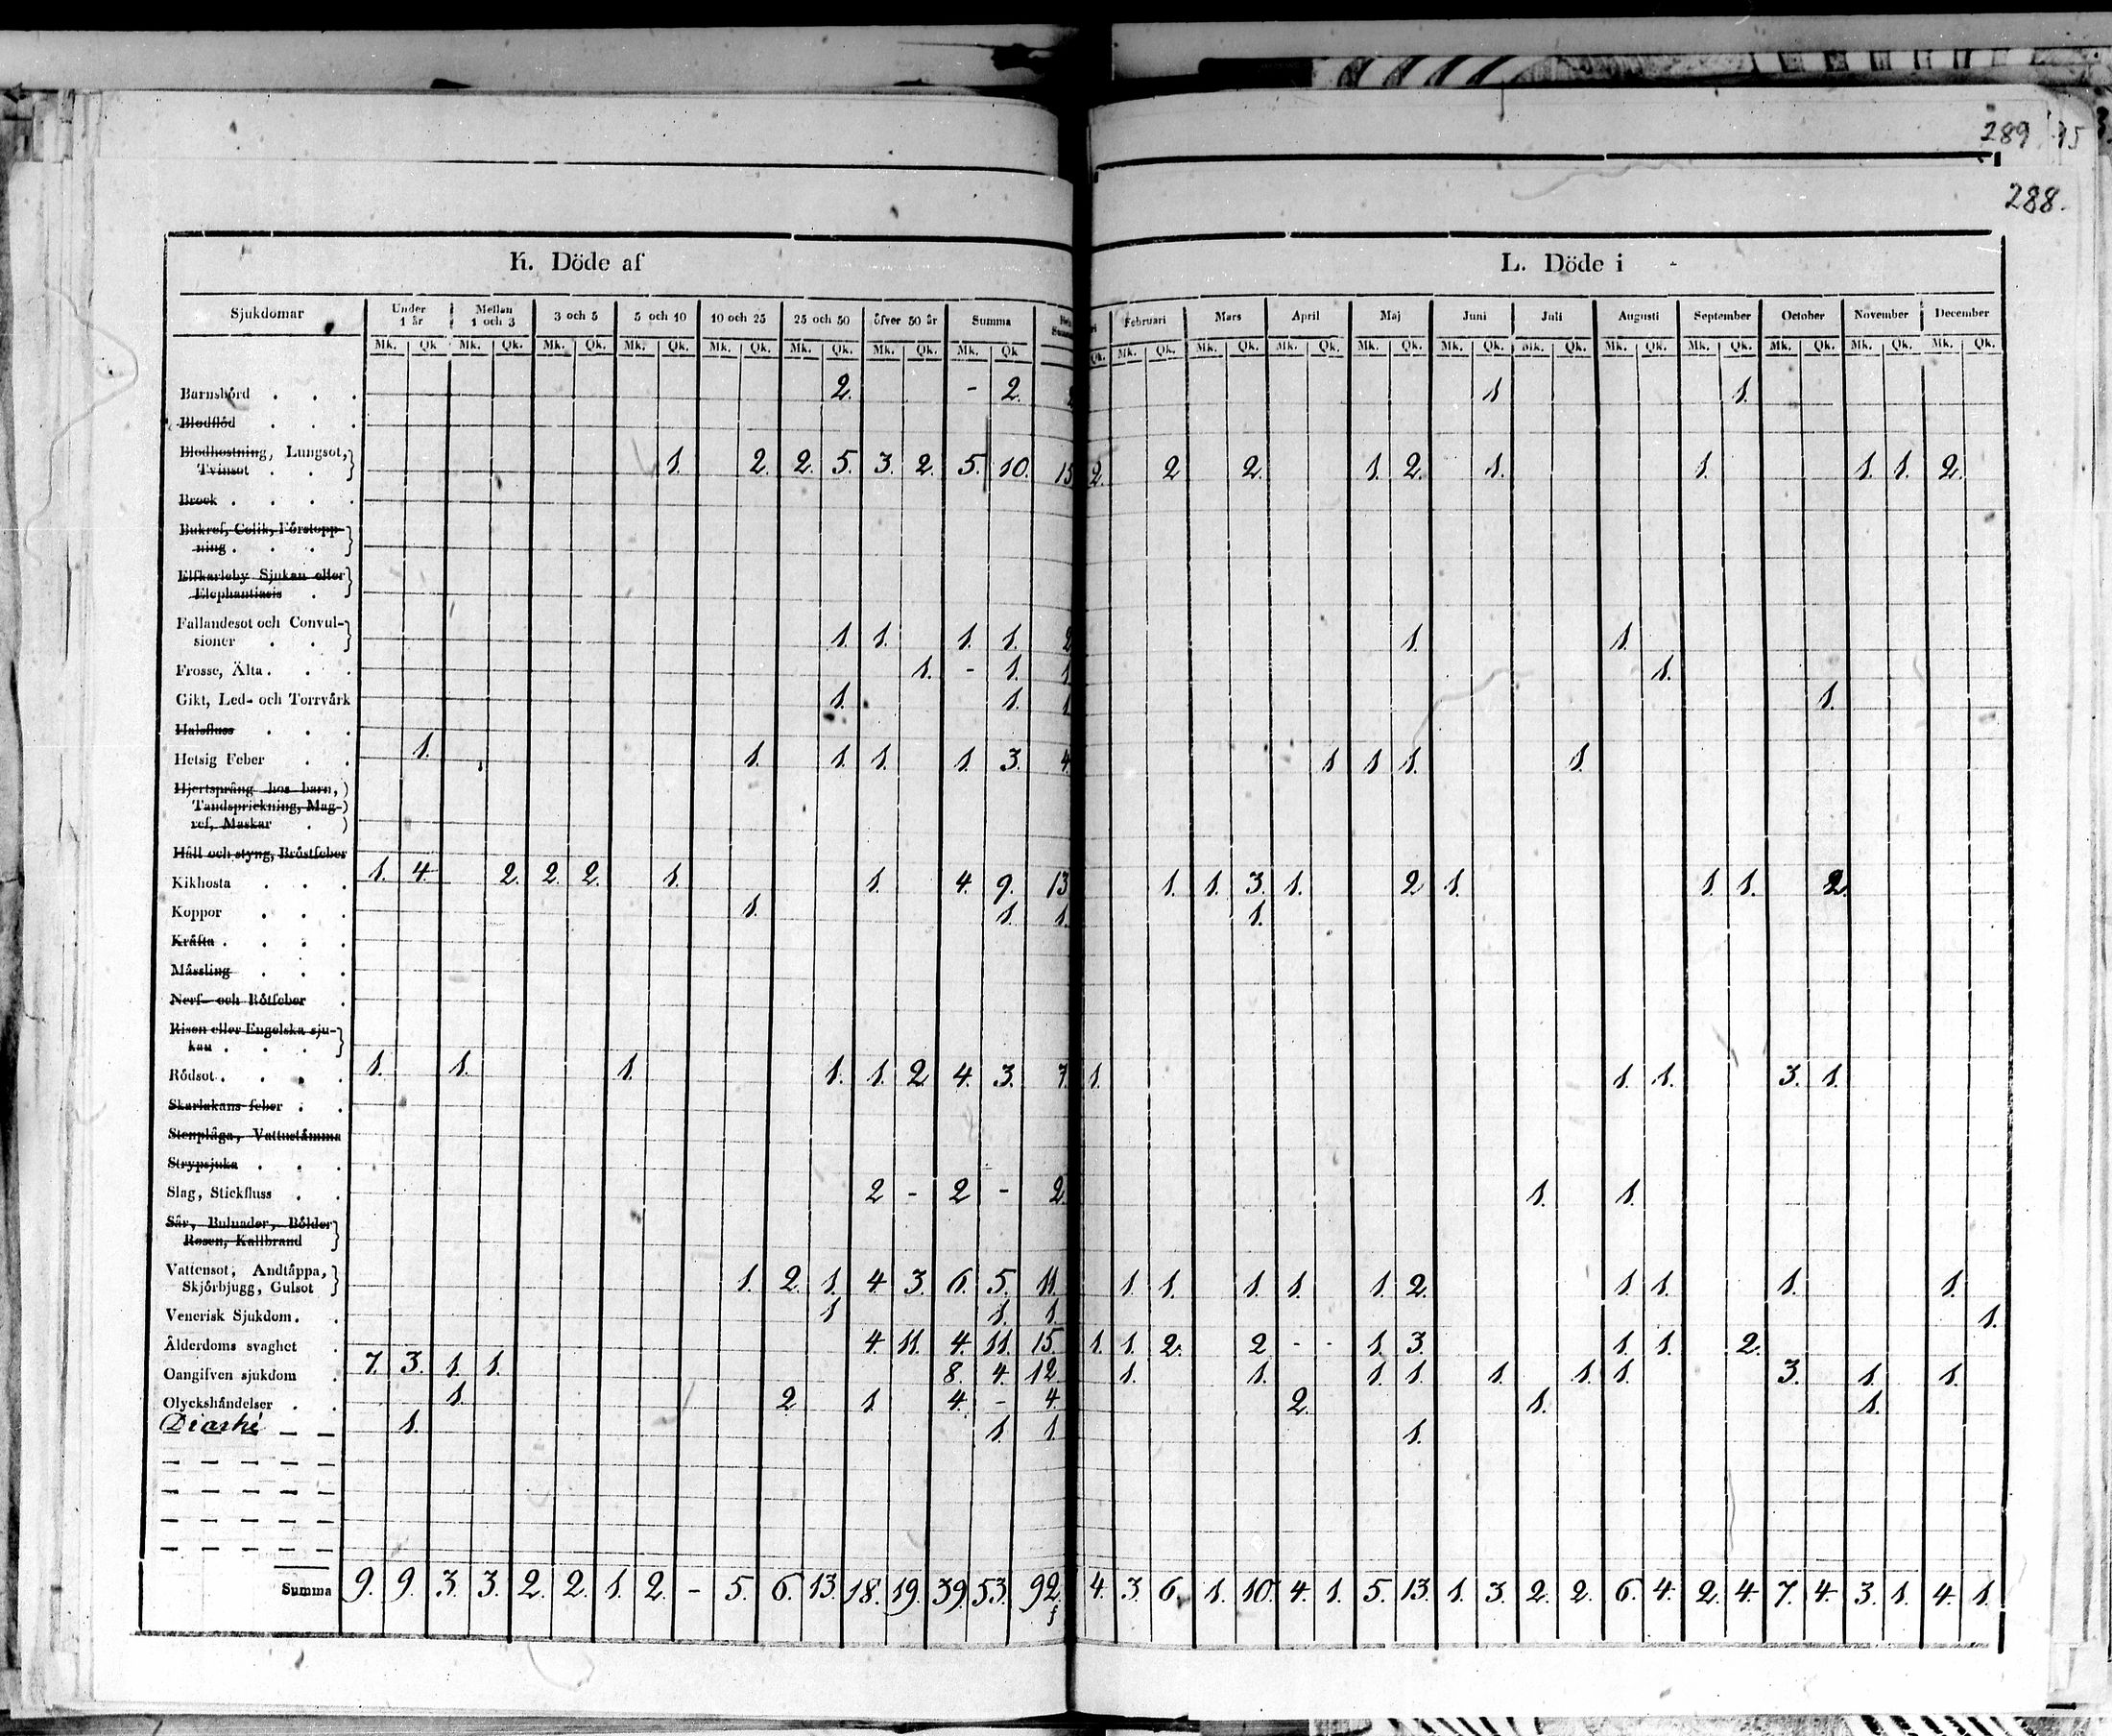 289 15
288.
K. Döde af
L. Döde i
Sjukdomar Under 1 år Mellan 1 och 3 3 och 5 5 och 10 10 och 25 25 och 50 öfver 50 år Summa Februari Mars April Maj Juni Juli Augusti September October November December
Mk. Qk Mk. Qk. Mk. Qk. Mk. Qk. Mk. Qk. Mk. Qk. Mk. Qk. Mk. Qk Qk. Mk. Qk. Mk. Qk. Mk. Qk. Mk. Qk. Mk. Qk. Mk. Qk. Mk. Qk. Mk. Qk. Mk. Qk. Mk. Qk. Mk. Qk.
Barnsbörd . . . 2. - 2. 1 1.
Blodflöd . . .
Blodhostning, Lungsot, Tvinsot . . 1. 2. 2. 5. 3. 2. 5. 10. 15 2. 2 2. 1. 2. 1. 1. 1. 1. 2.
Brock . . . .
Bukref, Colik, Förstopp-
ning . . .
Elfkarleby Sjukan eller
Elephantiasis .
Fallandesot och Convul-
sioner . . 1. 1. 1. 1. 2 1. 1.
Frosse, Älta . . . 1. - 1. 1 1.
Gikt, Led- och Torrvärk 1. 1. 1 1.
Halsfluss . . .
Hetsig Feber . . 1. 1. 1. 1. 1. 3. 4. 1 1. 1. 1.
Hjertsprång hos barn,
Tandsprickning, Mag-
ref, Maskar .
Håll och styng, Bröstfeber
Kikhosta . . . 1. 4. 2. 2. 2. 1. 1. 4. 9. 13 1. 1. 3. 1. 2 1. 1. 1. 2.
Koppor . . . 1. 1. 1. 1.
Kräfta . . . .
Mässling . . .
Nerf- och Rötfeber .
Risen eller Engelska sju-
kan . . .
Rödsot . . . . 1. 1. 1. 1. 1. 2 4. 3. 7. 1. 1. 1. 3. 1.
Skarlakans feber . .
Stenplåga, Vattustämma
Strypsjuka . . .
Slag, Stickfluss . . 2 - 2 - 2. 1. 1.
Sår, Bulnader, Bölder
Rosen, Kallbrand
Vattensot, Andtäppa,
Skjörbjugg, Gulsot 1. 2. 1. 4 3. 6. 5. 11. 1. 1. 1. 1. 1. 2. 1. 1. 1. 1.
Venerisk Sjukdom . . 1 1. 1. 1.
Ålderdoms svaghet . 4. 11. 4. 11. 15. 1. 1. 2. 2 - - 1. 3. 1. 1. 2.
Oangifven sjukdom . 7. 3. 1. 1. 8. 4. 12 1. 1. 1. 1. 1. 1. 1. 3. 1. 1.
Olyckshändelser . . 1. 2 1. 4. - 4 2. 1. 1.
Diarhé 1. 1. 1 1.
Summa 9. 9. 3. 3. 2. 2. 1. 2. - 5. 6. 13. 18. 19. 39. 53. 92. 4. 3. 6. 1. 10. 4. 1. 5. 13. 1. 3. 2. 2. 6. 4. 2. 4. 7. 4. 3. 1. 4. 1.